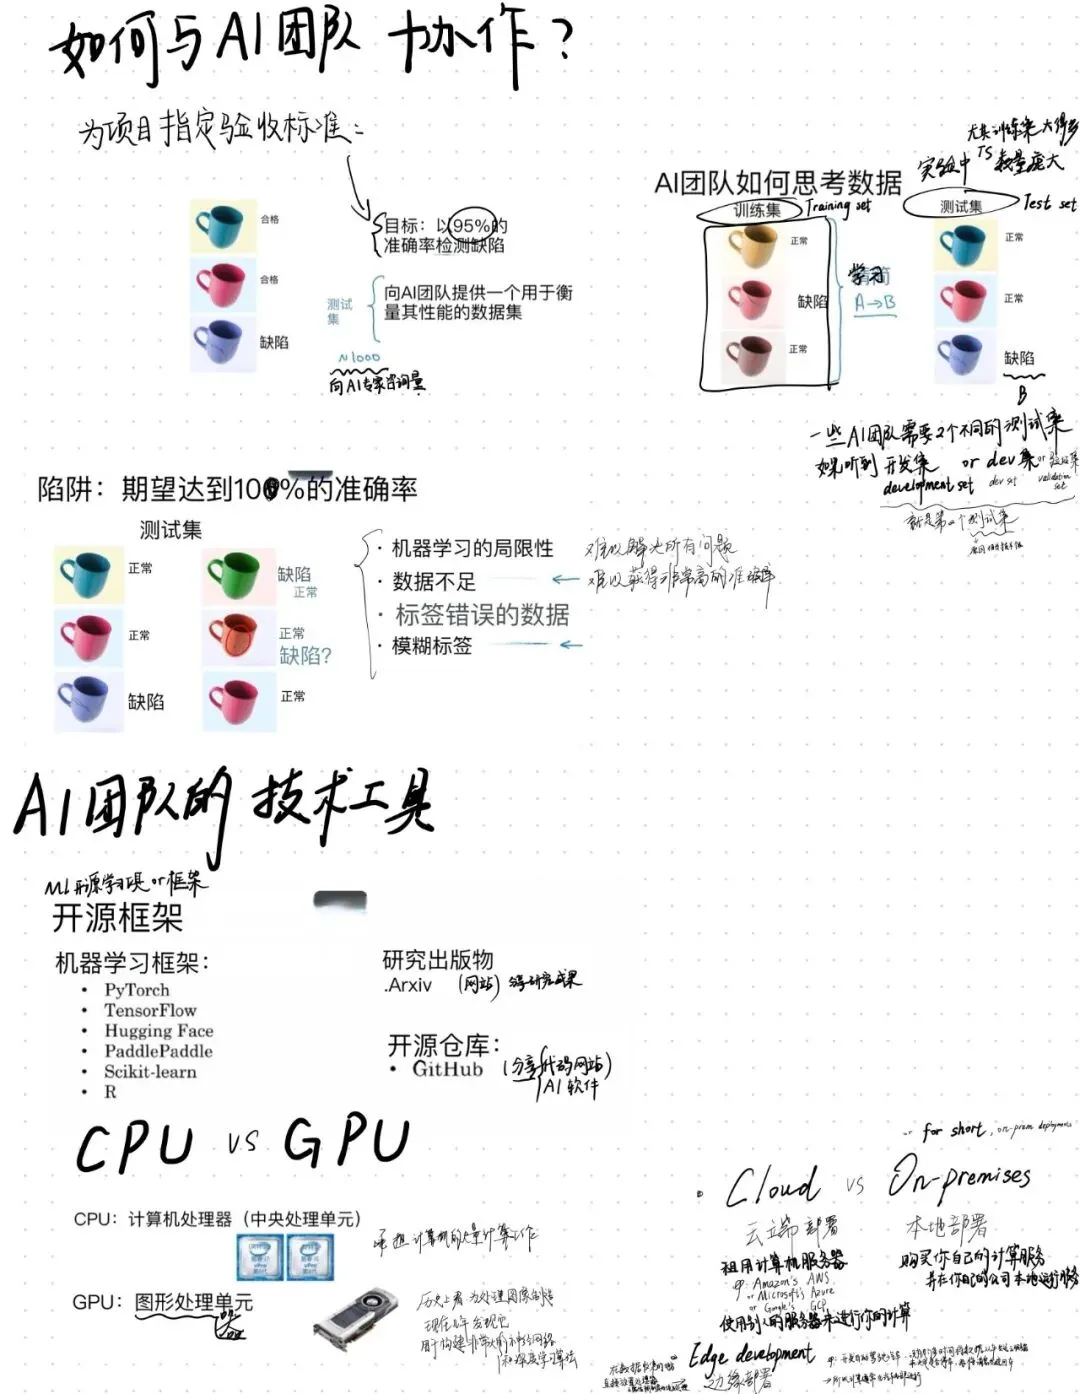 如何与AI团队 协作?
为项目指定验收标准:
合格
合格
缺陷
目标：以95%的
准确率检测缺陷
测试
集
向AI团队提供一个用于衡
量其性能的数据集
~1000
向AI专家咨询量
尤其训练集大得多
实验中 TS 数量庞大
AI团队如何思考数据
训练集 Training set
正常
缺陷
正常
学习
A→B
测试集 Test set
正常
正常
缺陷
B
一些AI团队需要2个不同的测试集
如果听到 开发集 or dev集 or 验证集
development set dev set validation set
就是第2个测试集
陷阱：期望达到100%的准确率
测试集
正常
缺陷
正常
正常
正常
缺陷?
缺陷
正常
· 机器学习的局限性 难以解决所有问题
· 数据不足 ← 难以获得非常高的准确率
· 标签错误的数据
· 模糊标签 ←
AI团队的技术工具
ML开源学习工具 or 框架
开源框架
机器学习框架：
• PyTorch
• TensorFlow
• Hugging Face
• PaddlePaddle
• Scikit-learn
• R
研究出版物
.Arxiv (网站) 分享研究成果
开源仓库：
• GitHub (分享 代码网站)
AI 软件
CPU vs GPU
CPU：计算机处理器（中央处理单元）
承担计算机的大量计算工作
GPU：图形处理单元
器
历史上看 为处理图像制造
现在几年发现它
用于构建非常大的神经网络
和深度学习算法
for short, on-prem deployment
· Cloud vs On-premises
云端部署 本地部署
租用计算机服务器
eg: Amazon's AWS
or Microsoft's Azure
or Google's GCP
使用别人的服务器来进行你的计算
购买你自己的计算服务
并在你自己的公司本地运行服务
Edge development
边缘部署